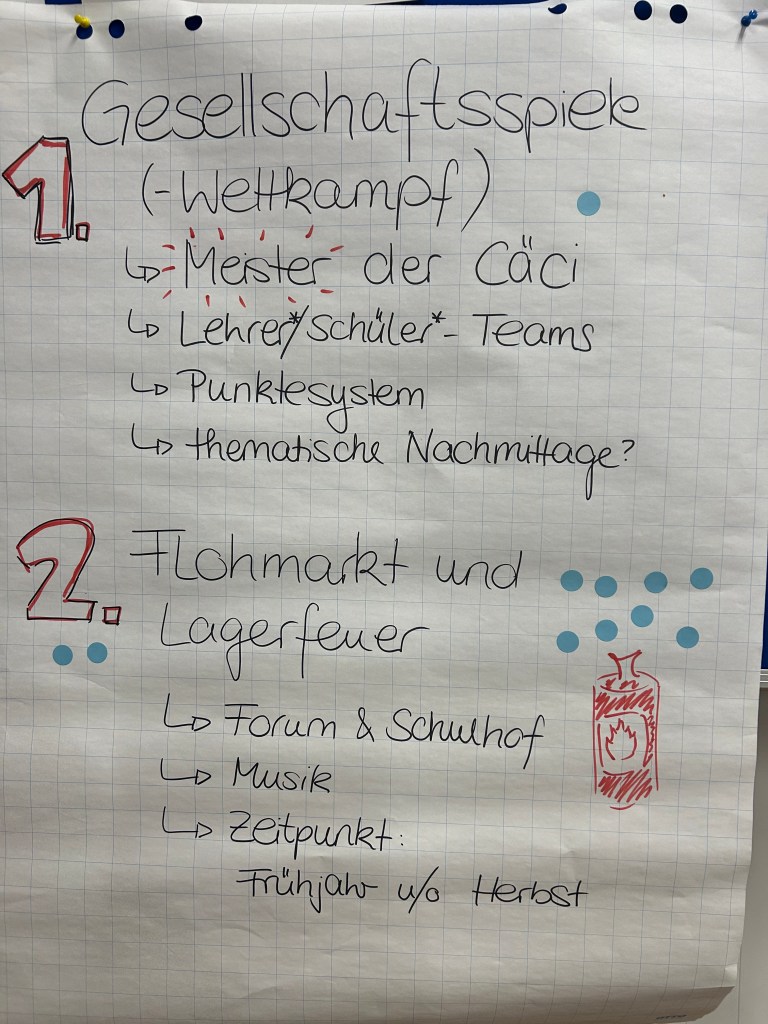 Gesellschaftsspiele
1. (-Wettkampf)
↳ Meister der Cäci
↳ Lehrer*/Schüler*-Teams
↳ Punktesystem
↳ thematische Nachmittage?
2. Flohmarkt und
Lagerfeuer
↳ Forum & Schulhof
↳ Musik
↳ Zeitpunkt:
Frühjahr u/o Herbst